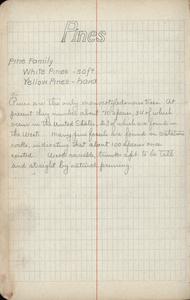 Pines
Pine Family
White Pines - soft
Yellow Pines - hard
Pines are the only trees. At
present they number about 70 species, 34 of which
occur in the United States, 23 of which are found in
the West. Many pine fossils are found on
rocks, indicating that about 100 species once
existed. Wood variable, trunks apt to be tall
and straight by natural pruning.